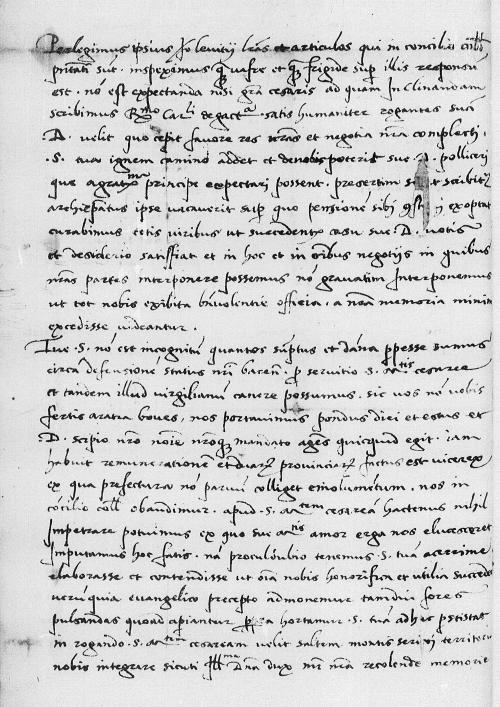 Perlegimus ipsius Jo leuitij lras et articulos qui in concilio
pntati sūt. inspeximus q̄ uafre et q̄ frigide sup illis responsū
est. nō est expectanda nisi gra cesaris ad quam Inclinandam
scribimus Rmo Carli satis humaniter rogantes suā
D. velit quo cepit fauore res nras et negotia nra complecti.
.S. tua ignem camino addet et de nobis poterit sue .D. polliceri
que a gratmo principe expectari possent. presertim scribit
archiepatus ipse uacauerit sup quo pensionē sibi exoptat
curabimus certis uiribus ut succedente casu sue .D. uotis
et desiderio satisfiat et in hoc et in oībus negotijs in quibus
nras partes interponere possemus nō grauatim Interponemus
ut tot nobis exibita bniuolentie officia. a nra memoria minime
excedisse uideantur.
Tue .S. nō est incognitū quantos sūptus et dāna ppesse sumus
circa defensionē status nri baren. p seruitio .S. cesaree
et tandem illud uirgilianū canere possumus. sic uos nō uobis
fertis aratra boues, nos portauimus pondus diei et estus et
D. scipio nro noīe nroq mandato agēs quicquid egit. iam
habuit remunerationē et duarȝ prouinciarȝ factus est uicerex
ex qua prefectura nō paruū colliget emolumētum. nos in
cōcilio coll obaudimur. apud .S. cesareā hactenus nihil
Impetrare potuimus ex quo sue amor erga nos elucesceret
Imputamus hoc fatis. nā proculdubio tenemus .S. tuā acerrime
elaborasse et contendisse ut oīa nobis honorifica et utilia succedāt
uerū quia euangelico precepto admonemur tamdiu fores
pulsandas quoad apiantur hortamur .S. tuā adhec pstitat
in rogando .S. cesaream uelit saltem montis serici territoriū
nobis integrare sicuti Illma Dna dux mr nra recolende memorie